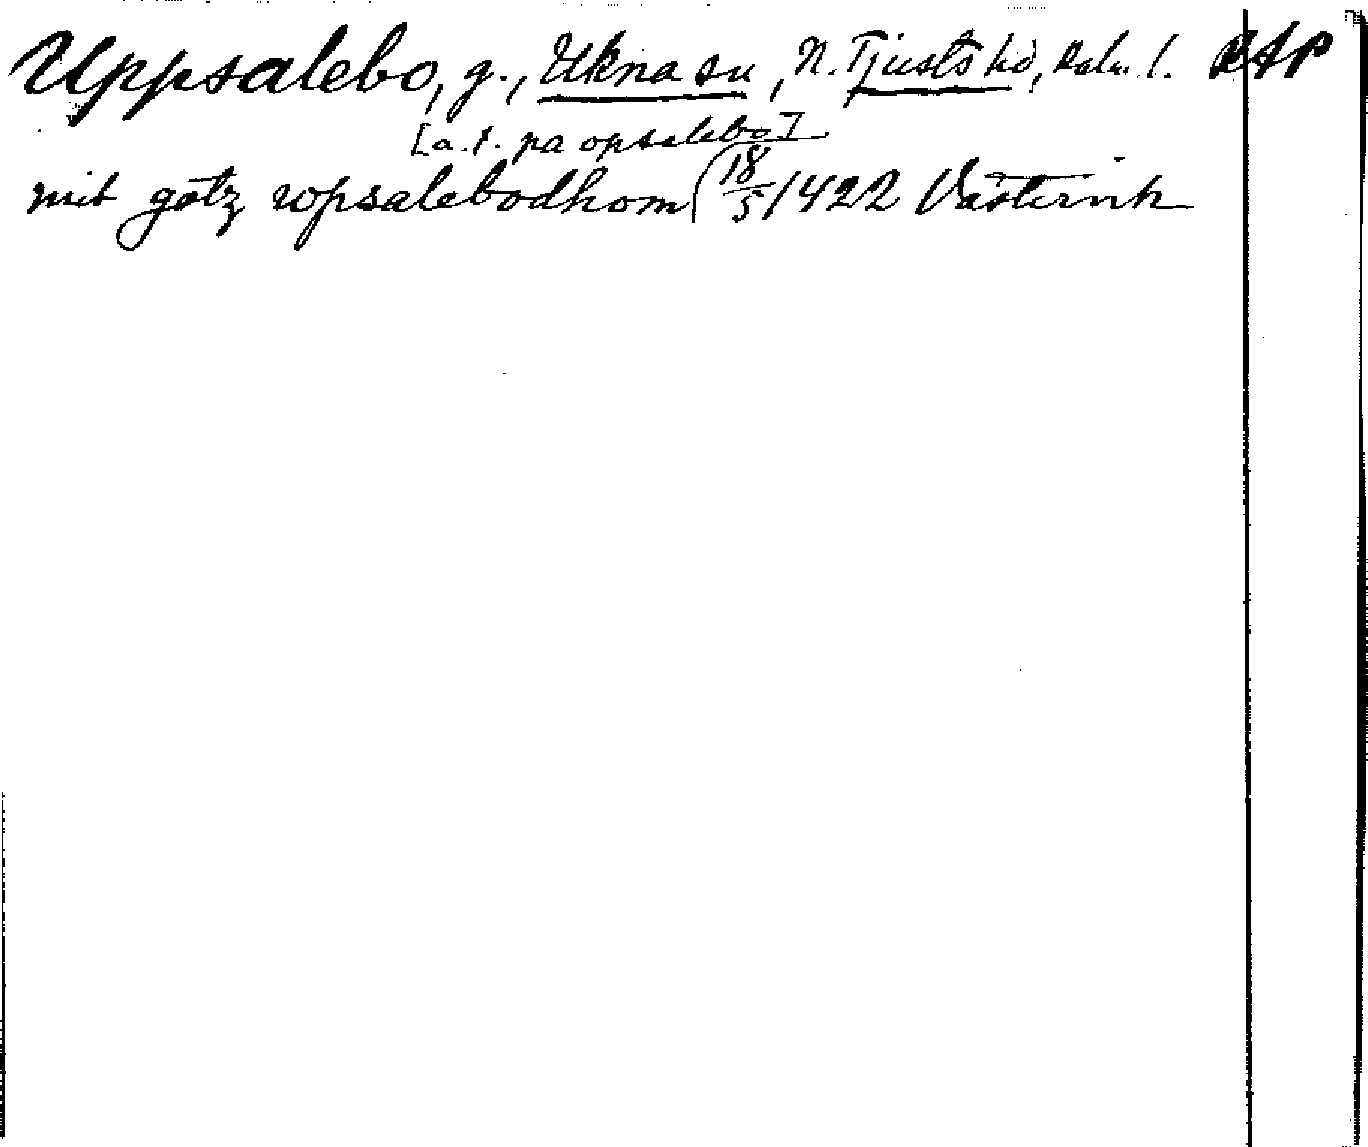 Uppsalebo, g., Ukna sn, N. Tjusts hd, Kalm. l. RAP
[a. t. pa opsalebo]
mit gotz vopsalebodhom 18/5 1422 Västervik